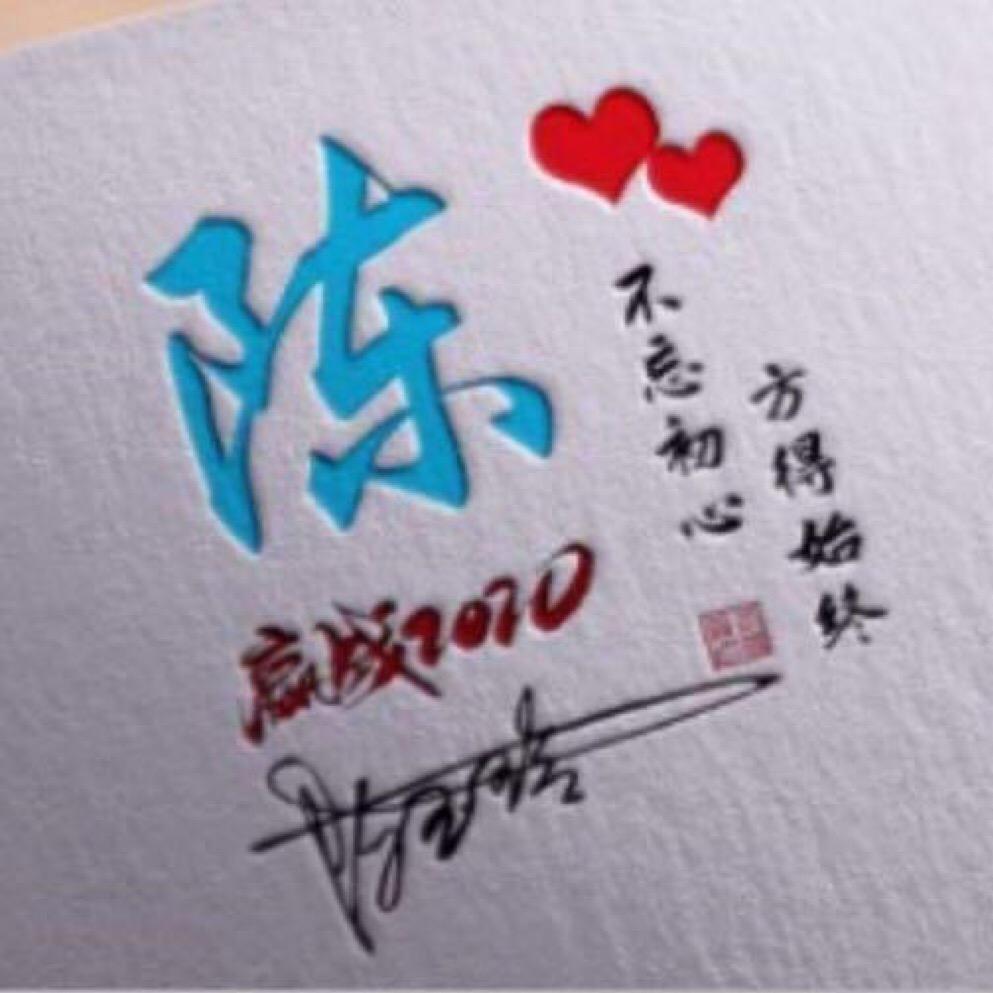 陈
不忘初心
方得始终
赢战2020